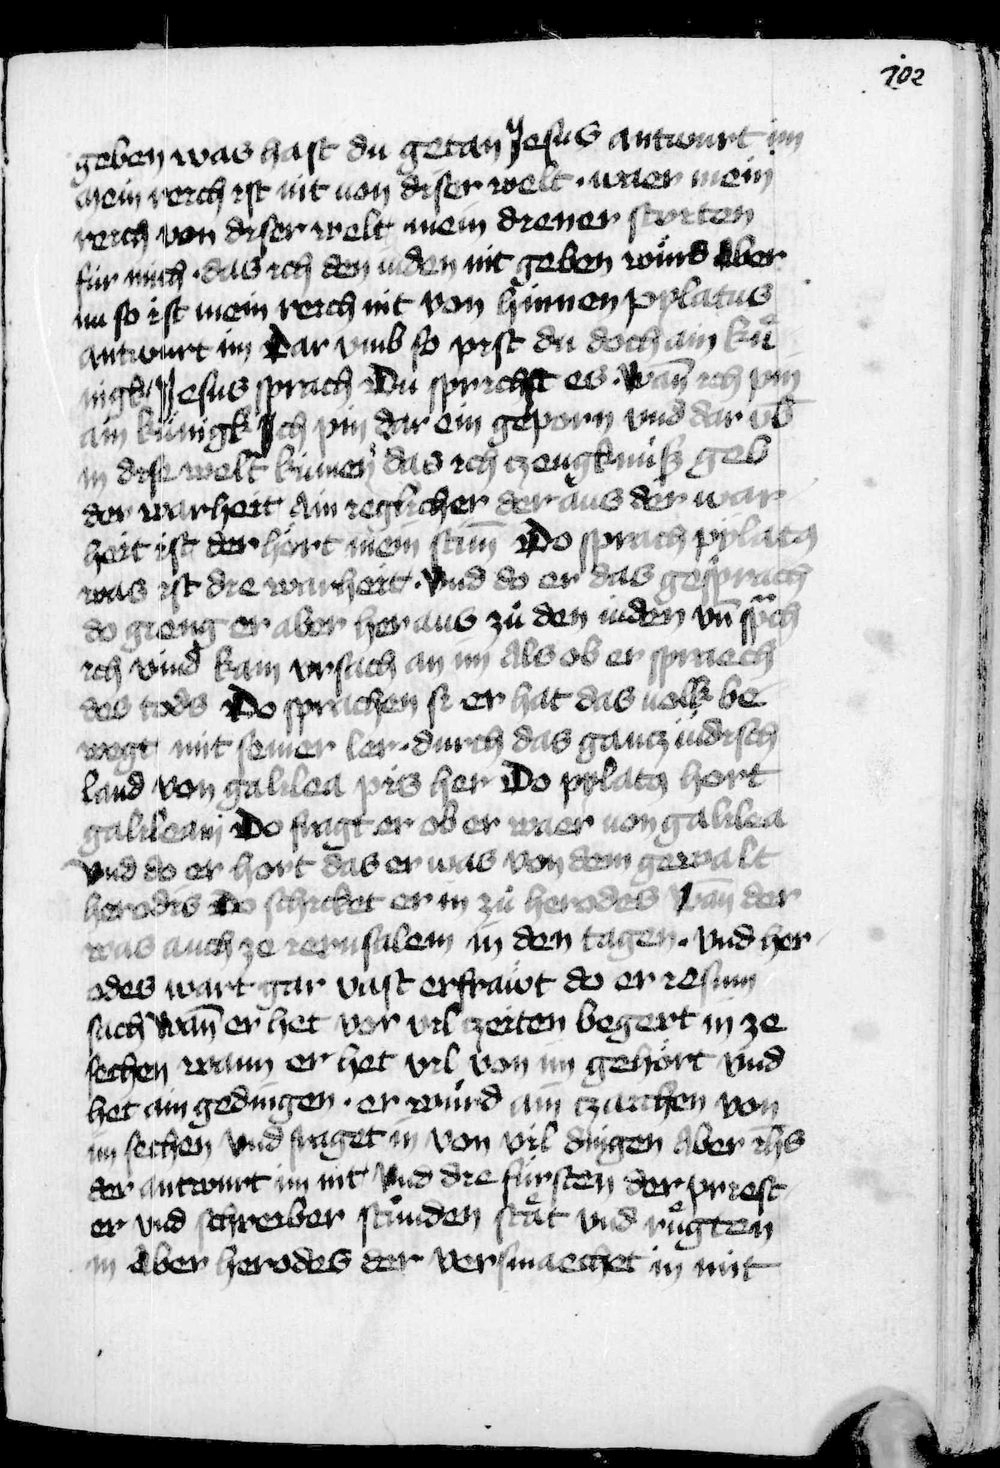 102
geben was hast du getan Jesus antwurt im
Mein reich ist nit uon diser welt · waer mein
reich von diser welt mein diener striten
für mich · das ich den iuden nit geben würd Aber
nu so ist mein reich nit von hinnen pylatus
antwurt im Dar vmb so pist du doch ain kü
nigk Jesus sprach Du sprichst es · Wañ ich pin
ain künigk Ich pin dar ein geporn vnd dar vb̄
in dise welt kumen das ich czeugknüß geb
der warheit Ain ieglicher der aus der war
heit ist der hört mein stim̄ Do sprach pylatꝰ
was ist die warheit · Vnd do er das gesprach
do gieng er aber her aus zů den iuden vn̄ spᵃch
ich vind kain vrsach an im Als ob er spraech
des tods Do sprachen si er hat das uolk be
wegt mit seiner ler · durch das gancz iüdisch
land von galilea pis her Do pylatꝰ hort
galileam Do fragt er ob er waer uon galilea
vnd do er hort das er was von dem gewalt
herodis Do schicket er in zů herodes Wañ der
was auch ze ierusalem in den tagen · Vnd her
odes wart gar vast erfraẅt do er iesum
sach Wañ er het vor vil czeiten begert in ze
sechen wann er het vil von im gehört vnd
het ain gedingen · er würd ain czaichen von
im sechen Vnd fraget in von vil dingen Aber ih̄s
der antwurt im nit Vnd die fürsten der priest
er vnd schreiber stůnden stät vnd růgten
in Aber herodes der versmaechet in mit